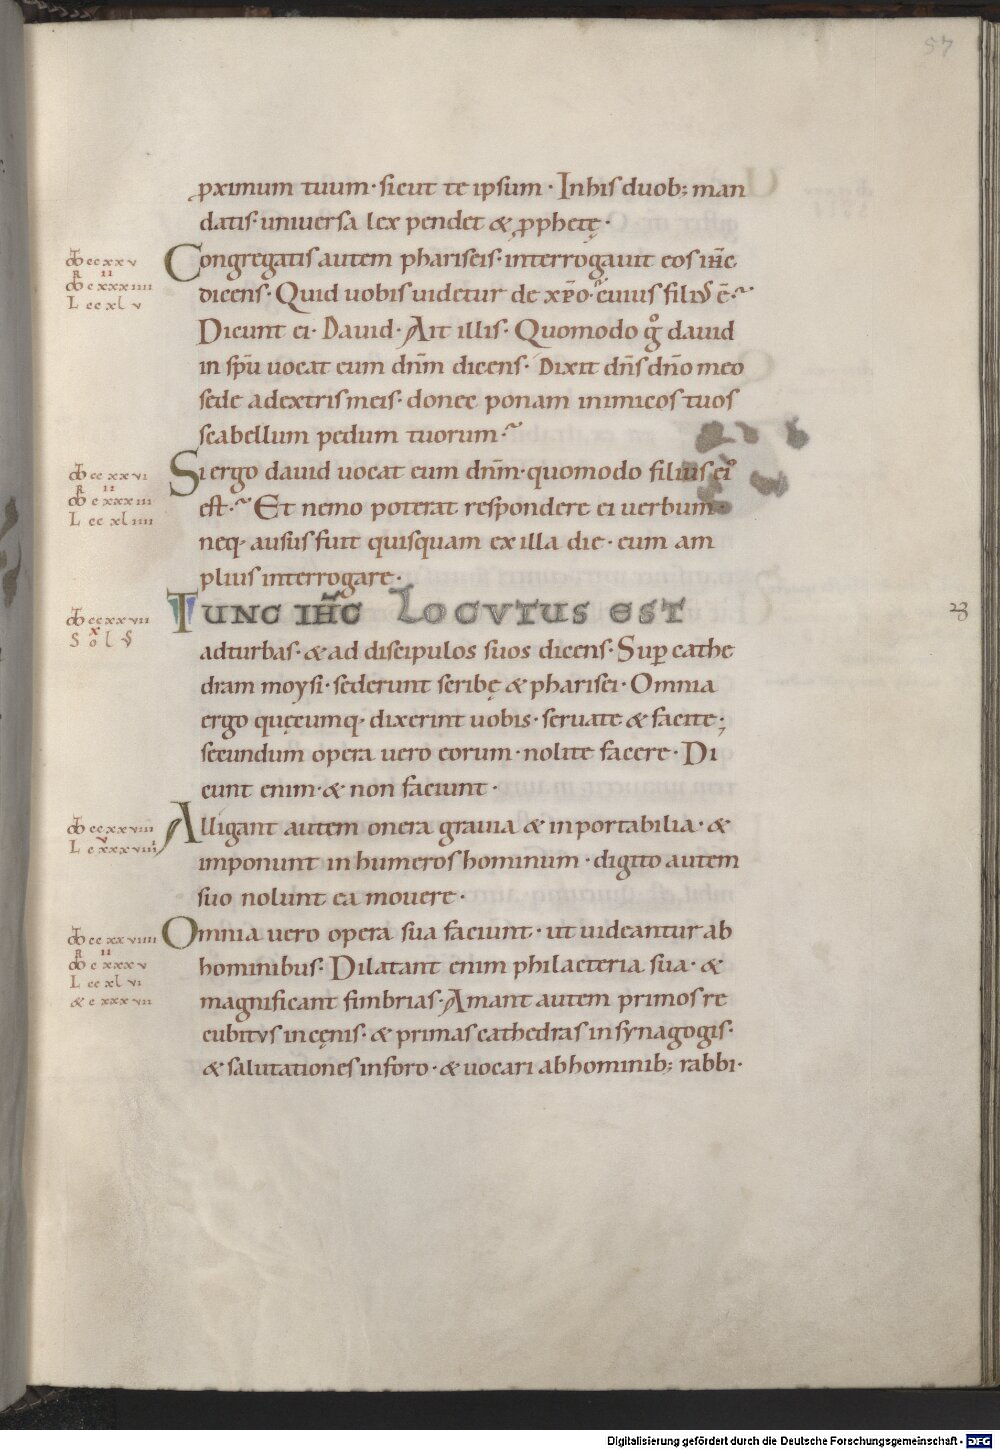 57
ꝓximum tuum· sicut te ipsum· In his duob; man
datis· uniuersa lex pendet & ꝓphetę·
Congregatis autem phariseis· interrogauit eos ih̅c
dicens· Quid uobis uidetur de xp̅o· cuius filiꝰ e̅·
Dicunt ei· Dauid· Ait illis· Quomodo gͦ dauid
in sp̅u uocat eum dn̅m dicens· Dixit dn̅s dn̅o meo
sede adextris meis· donec ponam inimicos tuos
scabellum pedum tuorum·
Si ergo dauid uocat eum dn̅m· quomodo filius eiꝰ
est· Et nemo poterat respondere ei uerbum·
neq· ausus fuit quisquam ex illa die· eum am
plius interrogare·
TUNC IH̅C LOCVTUS EST
23
adturbas· & ad discipulos suos dicens· Suꝑ cathe
dram moysi· sederunt scribę & pharisei· Omnia
ergo quęcumq· dixerint uobis· seruate & facite;
secundum opera uero eorum· nolite facere· Di
cunt enim· & non faciunt·
Alligant autem onera grauia & inportabilia· &
imponunt in humeros hominum· digito autem
suo nolunt ea mouere·
Omnia uero opera sua faciunt· ut uideantur ab
hominibus· Dilatant enim philacteria sua· &
magnificant fimbrias· Amant autem primos re
cubitvs in cęnis· & primas cathedras in synagogis·
& salutationes in foro· & uocari ab hominib; rabbi·
cc xx v
R II
c xxx iiii
L cc xl v
cc xx vi
R II
c xxx iii
L cc xl iiii
cc xx vii
cc xx viii
L c xxx viii
cc xx viiii
R II
c xxx v
L cc xl vi
& c xxx vii
Digitalisierung gefördert durch die Deutsche Forschungsgemeinschaft - DFG